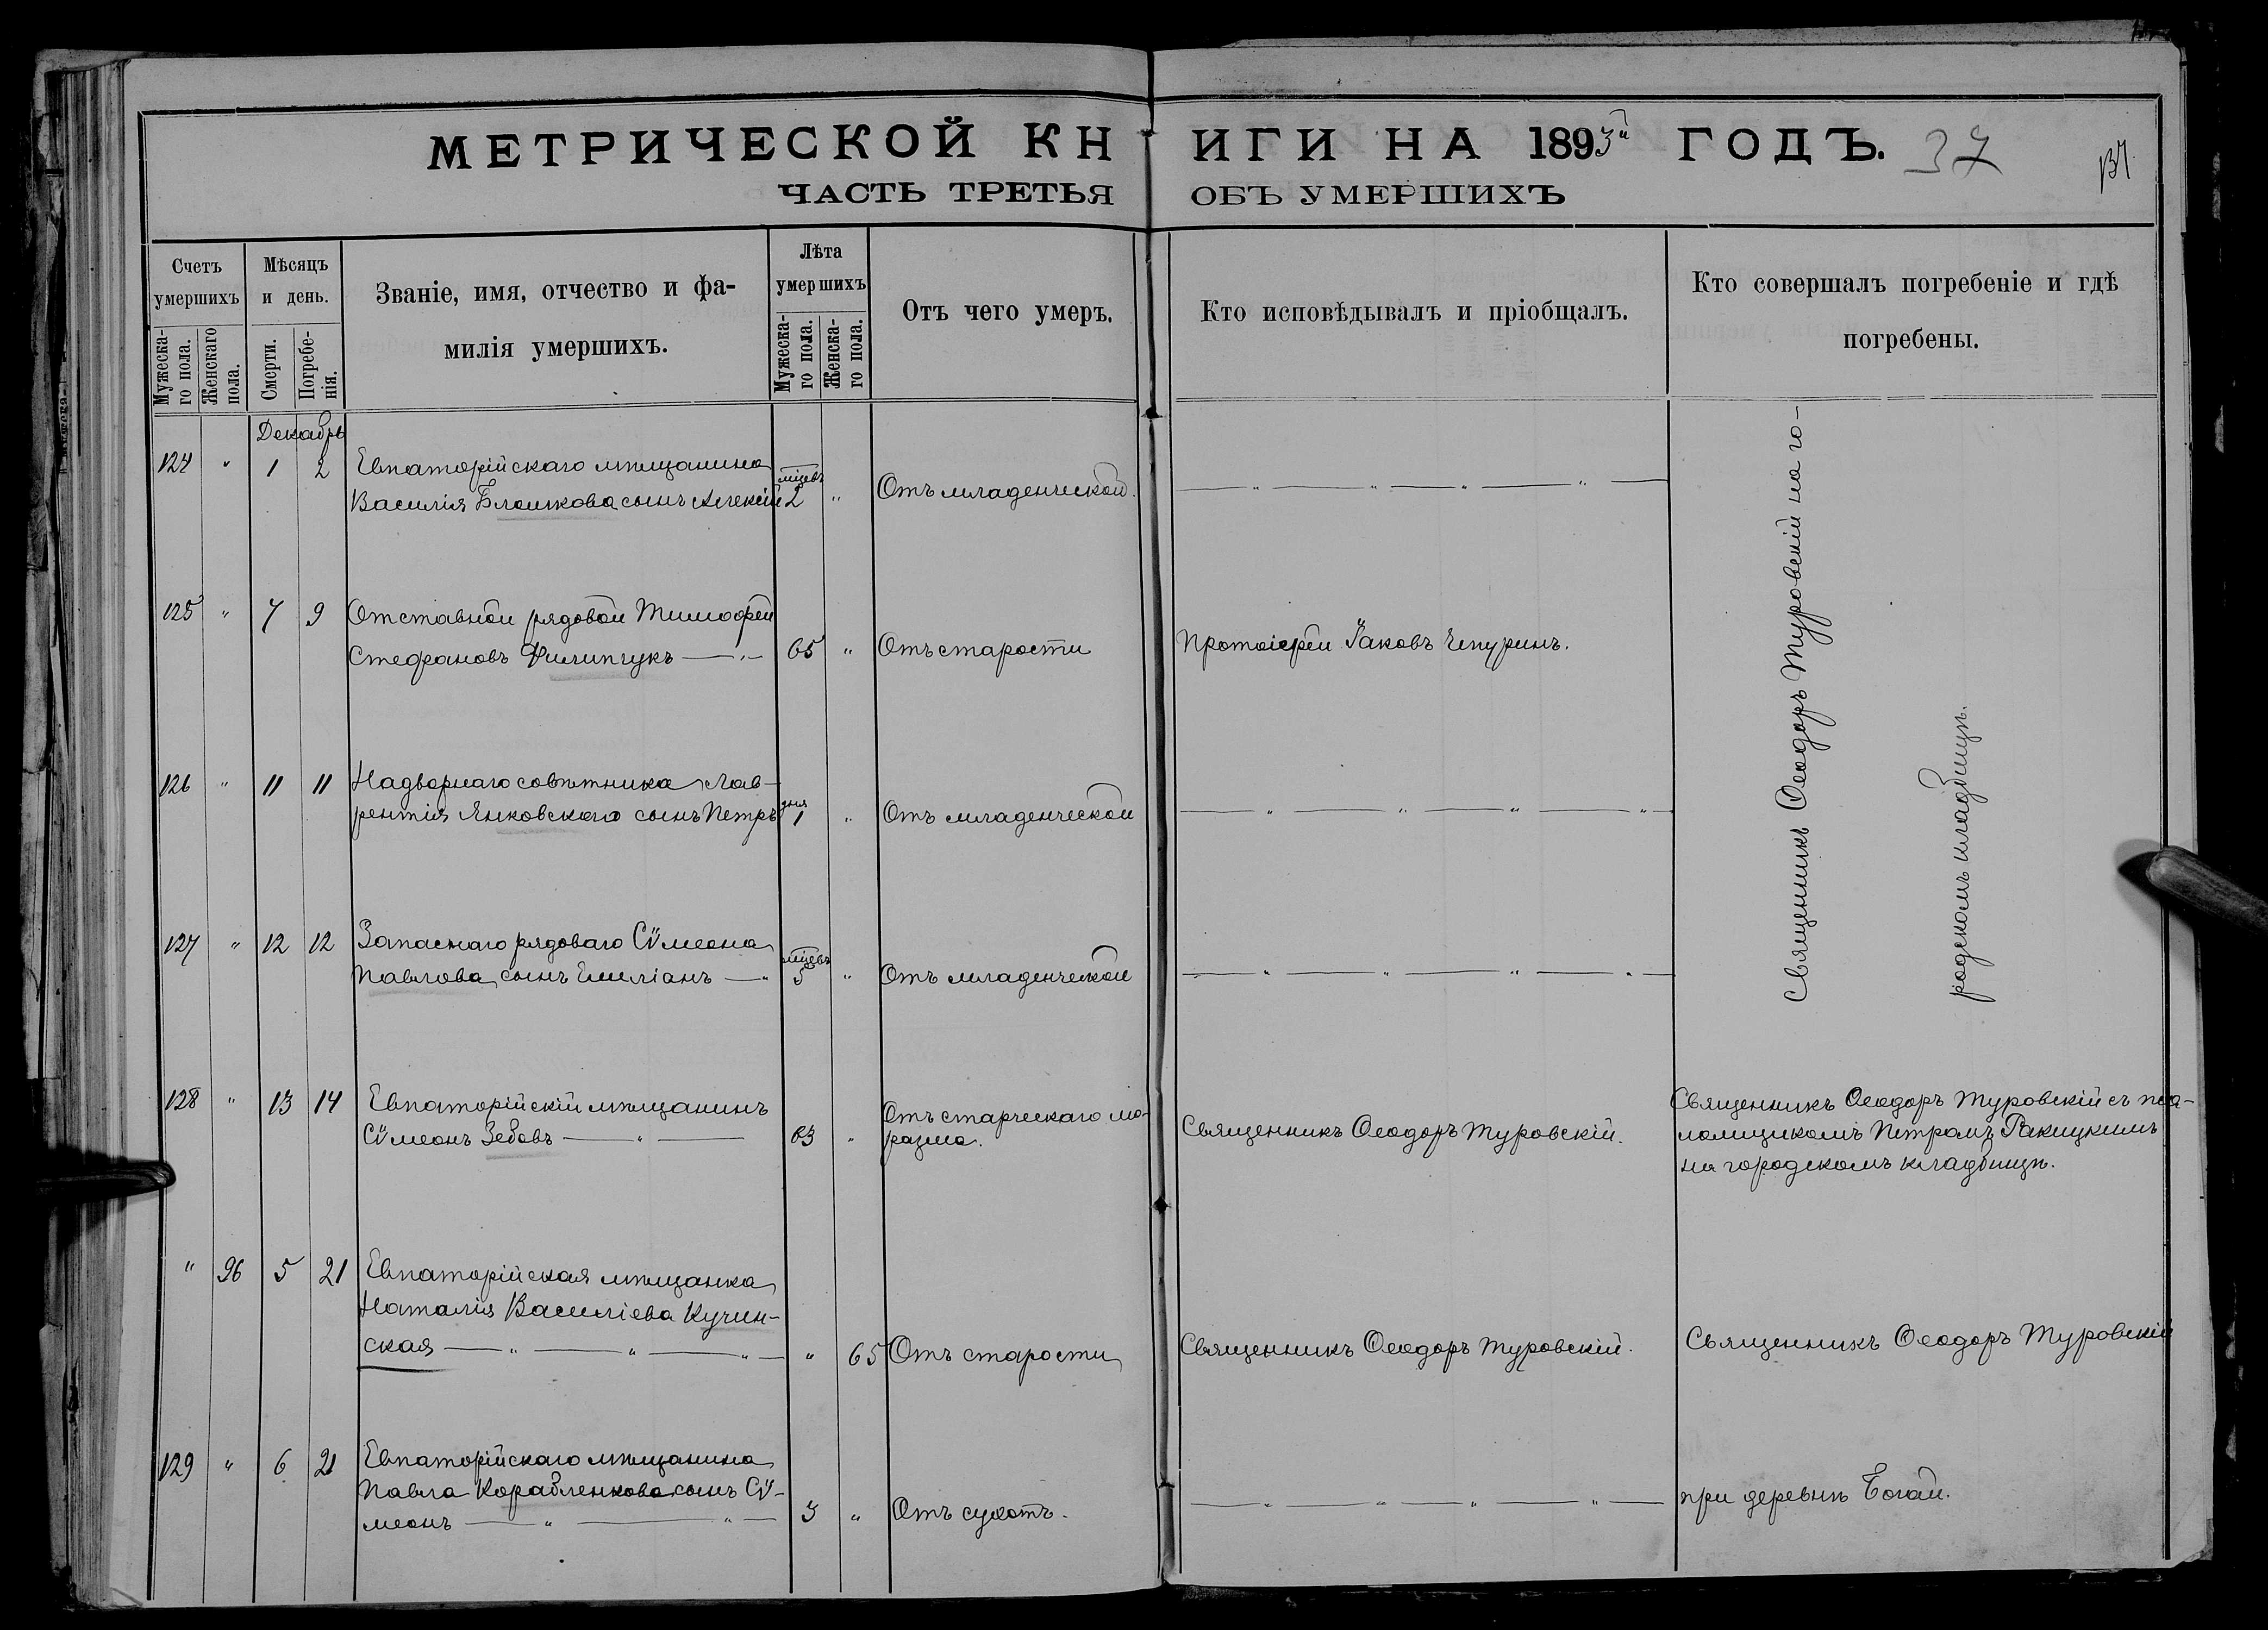 МЕТРИЧЕСКОЙ КНИГИ НА 1893й ГОДЪ. 37 137
ЧАСТЬ ТРЕТЬЯ ОБЪ УМЕРШИХЪ
Счетъ умершихъ
Мужеска-го пола.
Женскаго пола.
Мѣсяцъ и день.
Смерти.
Погребе-нія.
Званіе, имя, отчество и фа-
милія умершихъ.
Лѣта умершихъ
Мужеска-го пола.
Женска-го пола.
Отъ чего умеръ.
Кто исповѣдывалъ и пріобщалъ.
Кто совершалъ погребеніе и гдѣ
погребены.
Декабрь
124 " 1 2 Евпаторійскаго мѣщанина
Василія сынъ Алексій мцевъ 2 " Отъ младенческой. — " — " — " — " —
125 " 7 9 Отставной рядовой Тимофей
Стефановъ Филипчукъ — " — 65 " Отъ старости Протоіерей Іаковъ Чепуринъ.
126 " 11 11 Надворнаго совѣтника Лав-
рентія Янковскаго сынъ Петръ дня 1 " Отъ младенческой — " — " — " — " —
127 " 12 12 Запаснаго рядоваго Сѵмеона
Павлова сынъ Емиліанъ — " мцевъ 5 " Отъ младенческой — " — " — " — " —
Священникъ Ѳеодоръ Туровскій на го-
родскомъ кладбищѣ.
128 " 13 14 Евпаторійскій мѣщанинъ
Сѵмеонъ Зебовъ — " — 63 " Отъ старческаго ма-
разма. Священникъ Ѳеодоръ Туровскій.
Священникъ Ѳеодоръ Туровскій съ пса-
ломщикомъ Петромъ Ракицкимъ
на городскомъ кладбищѣ.
" 96 5 21 Евпаторійская мѣщанка
Наталія Василіева Кучин-
ская — " — " — " — " 65 Отъ старости Священникъ Ѳеодоръ Туровскій. Священникъ Ѳеодоръ Туровскій
129 " 6 21 Евпаторійскаго мѣщанина
Павла Корабленкова сынъ Сѵ-
меонъ — " — " — 3 " Отъ сухотъ. — " — " — " — " — при деревнѣ Богай.